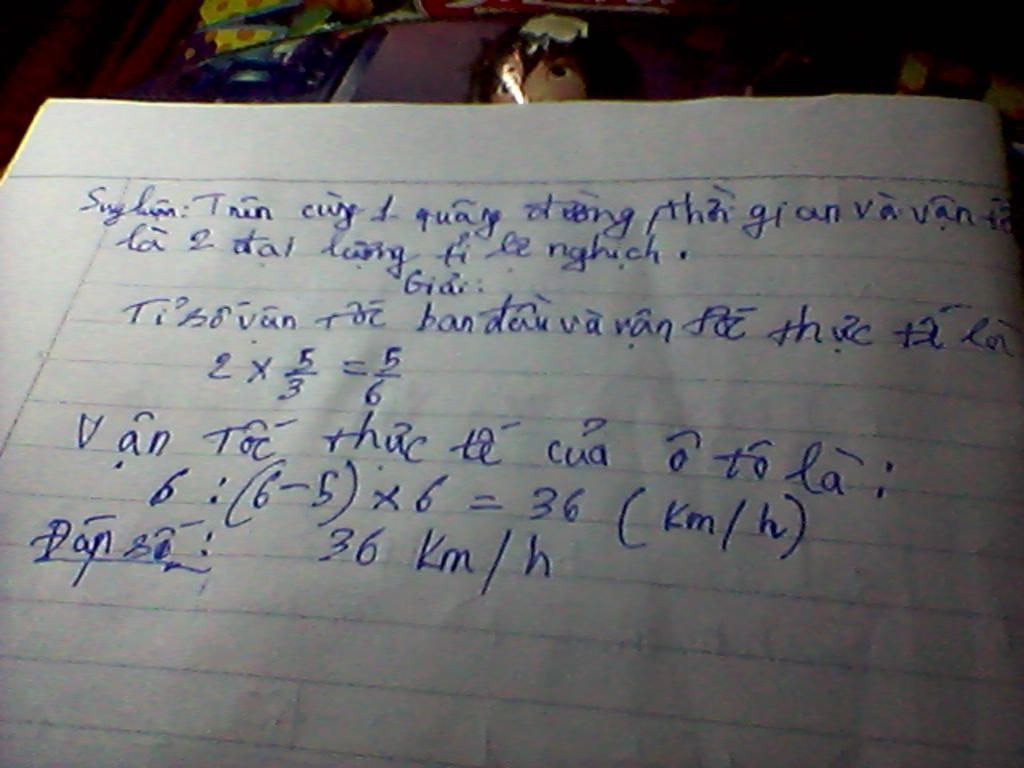 Suy luận: Trên cùng 1 quãng đường, thời gian và vận tố
là 2 đại lượng tỉ lệ nghịch.
Giải:
Tỉ số vận tốc ban đầu và vận tốc thực tế là
2 × 5/3 = 5/6
Vận tốc thực tế của ô tô là:
6 : (6-5) × 6 = 36 (km/h)
Đáp số: 36 km/h